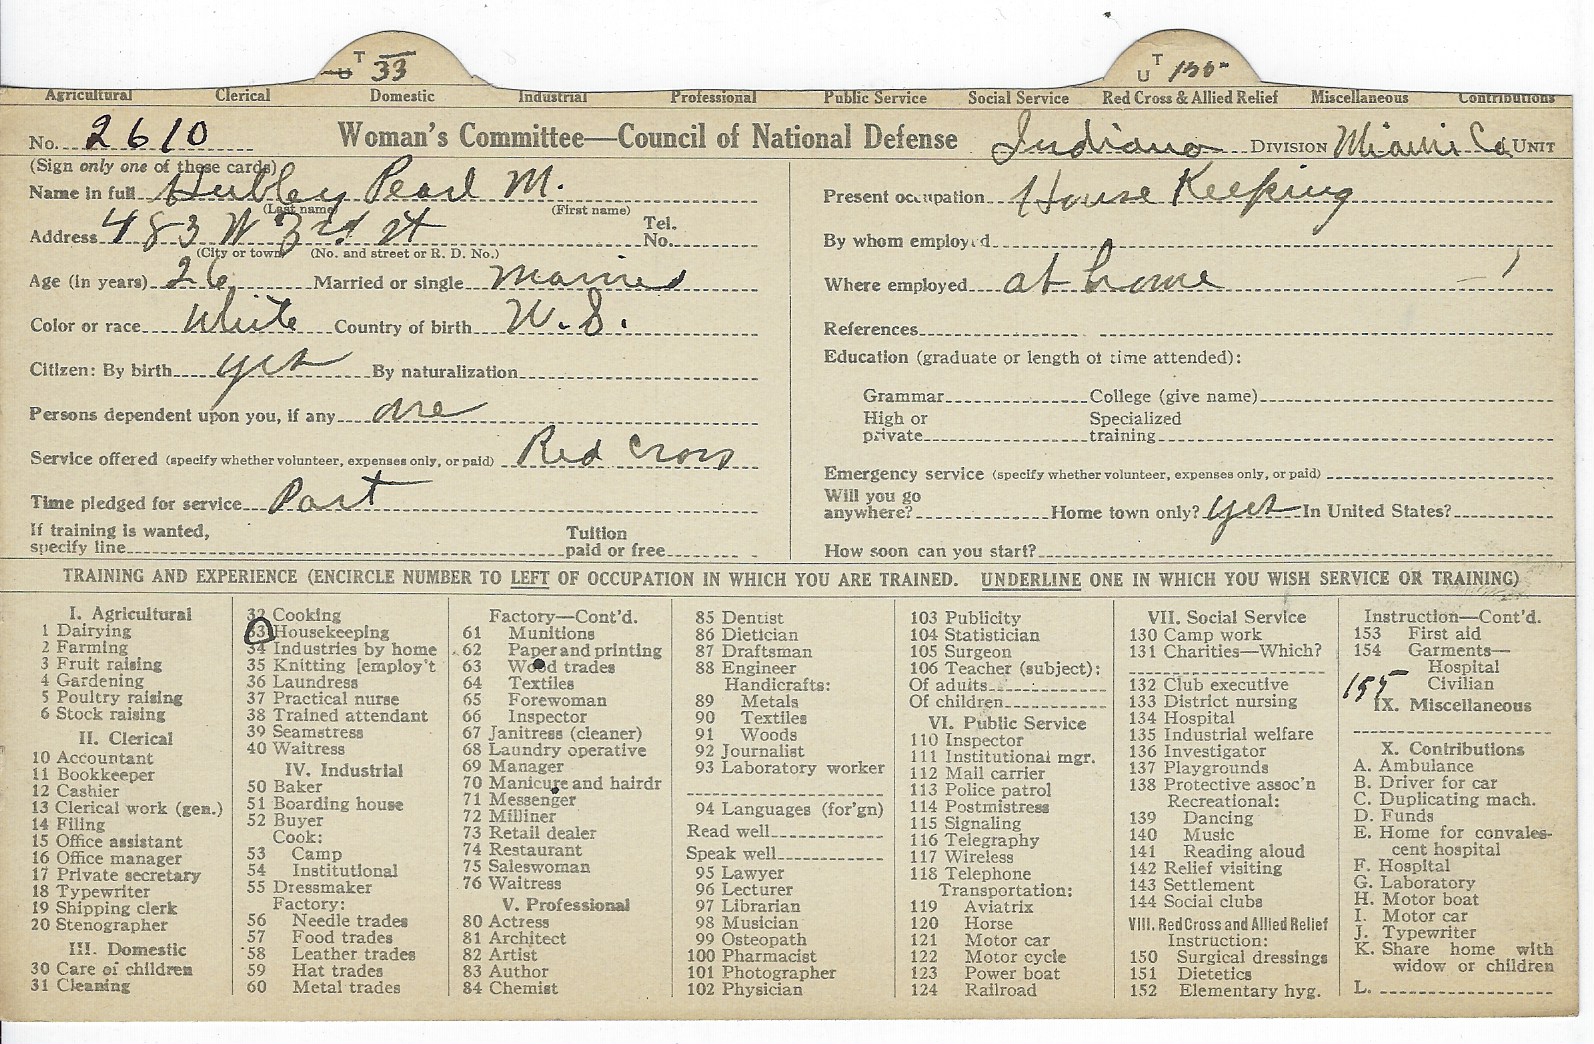 T U 33
T U 155
Agricultural Clerical Domestic Industrial Professional Public Service Social Service Red Cross & Allied Relief Miscellaneous Contributions
No. 2610 Woman's Committee—Council of National Defense Indiana DIVISION Miami Co UNIT
(Sign only one of these cards)
Name in full Hubley Pearl M.
(Last name) (First name)
Address 483 W 3rd st Tel. No.
(City or town) (No. and street or R. D. No.)
Age (in years) 26 Married or single Married
Color or race White Country of birth U.S.
Citizen: By birth yes By naturalization
Persons dependent upon you, if any one
Service offered (specify whether volunteer, expenses only, or paid) Red Cross
Time pledged for service Part
If training is wanted, specify line Tuition paid or free
Present occupation House Keeping
By whom employed
Where employed at home
References
Education (graduate or length of time attended):
Grammar College (give name)
High or private Specialized training
Emergency service (specify whether volunteer, expenses only, or paid)
Will you go anywhere? Home town only? yes In United States?
How soon can you start?
TRAINING AND EXPERIENCE (ENCIRCLE NUMBER TO LEFT OF OCCUPATION IN WHICH YOU ARE TRAINED. UNDERLINE ONE IN WHICH YOU WISH SERVICE OR TRAINING)
I. Agricultural
1 Dairying
2 Farming
3 Fruit raising
4 Gardening
5 Poultry raising
6 Stock raising
II. Clerical
10 Accountant
11 Bookkeeper
12 Cashier
13 Clerical work (gen.)
14 Filing
15 Office assistant
16 Office manager
17 Private secretary
18 Typewriter
19 Shipping clerk
20 Stenographer
III. Domestic
30 Care of children
31 Cleaning
32 Cooking
33 Housekeeping
34 Industries by home
35 Knitting [employ't
36 Laundress
37 Practical nurse
38 Trained attendant
39 Seamstress
40 Waitress
IV. Industrial
50 Baker
51 Boarding house
52 Buyer
Cook:
53 Camp
54 Institutional
55 Dressmaker
Factory:
56 Needle trades
57 Food trades
58 Leather trades
59 Hat trades
60 Metal trades
Factory—Cont'd.
61 Munitions
62 Paper and printing
63 Wood trades
64 Textiles
65 Forewoman
66 Inspector
67 Janitress (cleaner)
68 Laundry operative
69 Manager
70 Manicure and hairdr
71 Messenger
72 Milliner
73 Retail dealer
74 Restaurant
75 Saleswoman
76 Waitress
V. Professional
80 Actress
81 Architect
82 Artist
83 Author
84 Chemist
85 Dentist
86 Dietician
87 Draftsman
88 Engineer
Handicrafts:
89 Metals
90 Textiles
91 Woods
92 Journalist
93 Laboratory worker
94 Languages (for'gn)
Read well
Speak well
95 Lawyer
96 Lecturer
97 Librarian
98 Musician
99 Osteopath
100 Pharmacist
101 Photographer
102 Physician
103 Publicity
104 Statistician
105 Surgeon
106 Teacher (subject):
Of adults
Of children
VI. Public Service
110 Inspector
111 Institutional mgr.
112 Mail carrier
113 Police patrol
114 Postmistress
115 Signaling
116 Telegraphy
117 Wireless
118 Telephone
Transportation:
119 Aviatrix
120 Horse
121 Motor car
122 Motor cycle
123 Power boat
124 Railroad
VII. Social Service
130 Camp work
131 Charities—Which?
132 Club executive
133 District nursing
134 Hospital
135 Industrial welfare
136 Investigator
137 Playgrounds
138 Protective assoc'n
Recreational:
139 Dancing
140 Music
141 Reading aloud
142 Relief visiting
143 Settlement
144 Social clubs
VIII. Red Cross and Allied Relief
Instruction:
150 Surgical dressings
151 Dietetics
152 Elementary hyg.
Instruction—Cont'd.
153 First aid
154 Garments—
Hospital
155 Civilian
IX. Miscellaneous
X. Contributions
A. Ambulance
B. Driver for car
C. Duplicating mach.
D. Funds
E. Home for convales-
cent hospital
F. Hospital
G. Laboratory
H. Motor boat
I. Motor car
J. Typewriter
K. Share home with
widow or children
L.